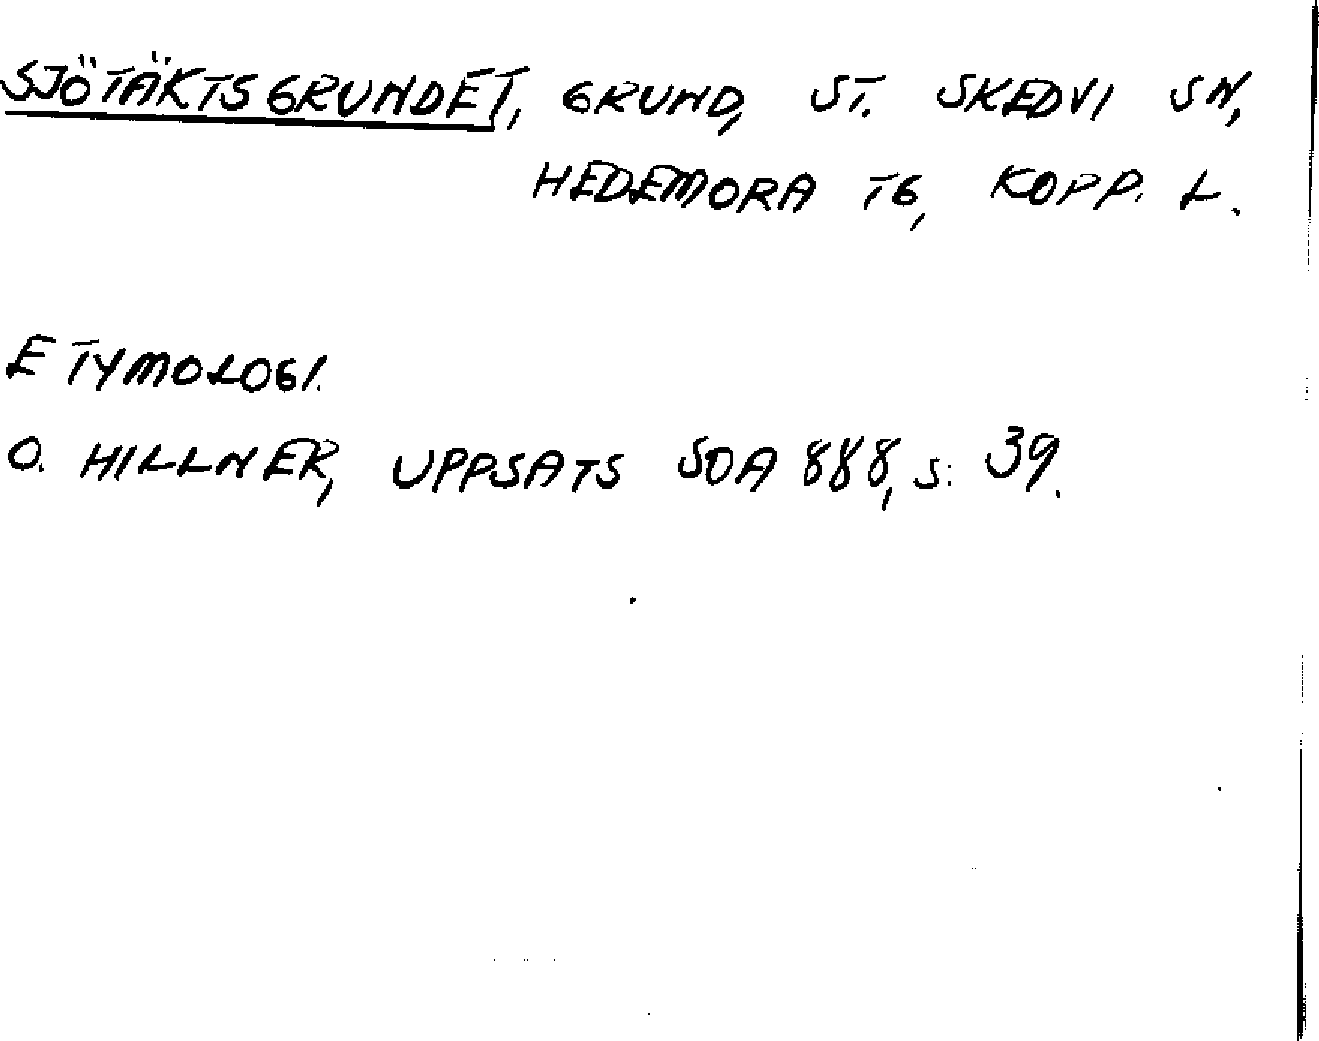 SJÖTÄKTSGRUNDET, GRUND, ST. SKEDVI SN,
HEDEMORA TG, KOPP. L.
ETYMOLOGI.
O. HILLNER, UPPSATS SOA 888, S: 39.